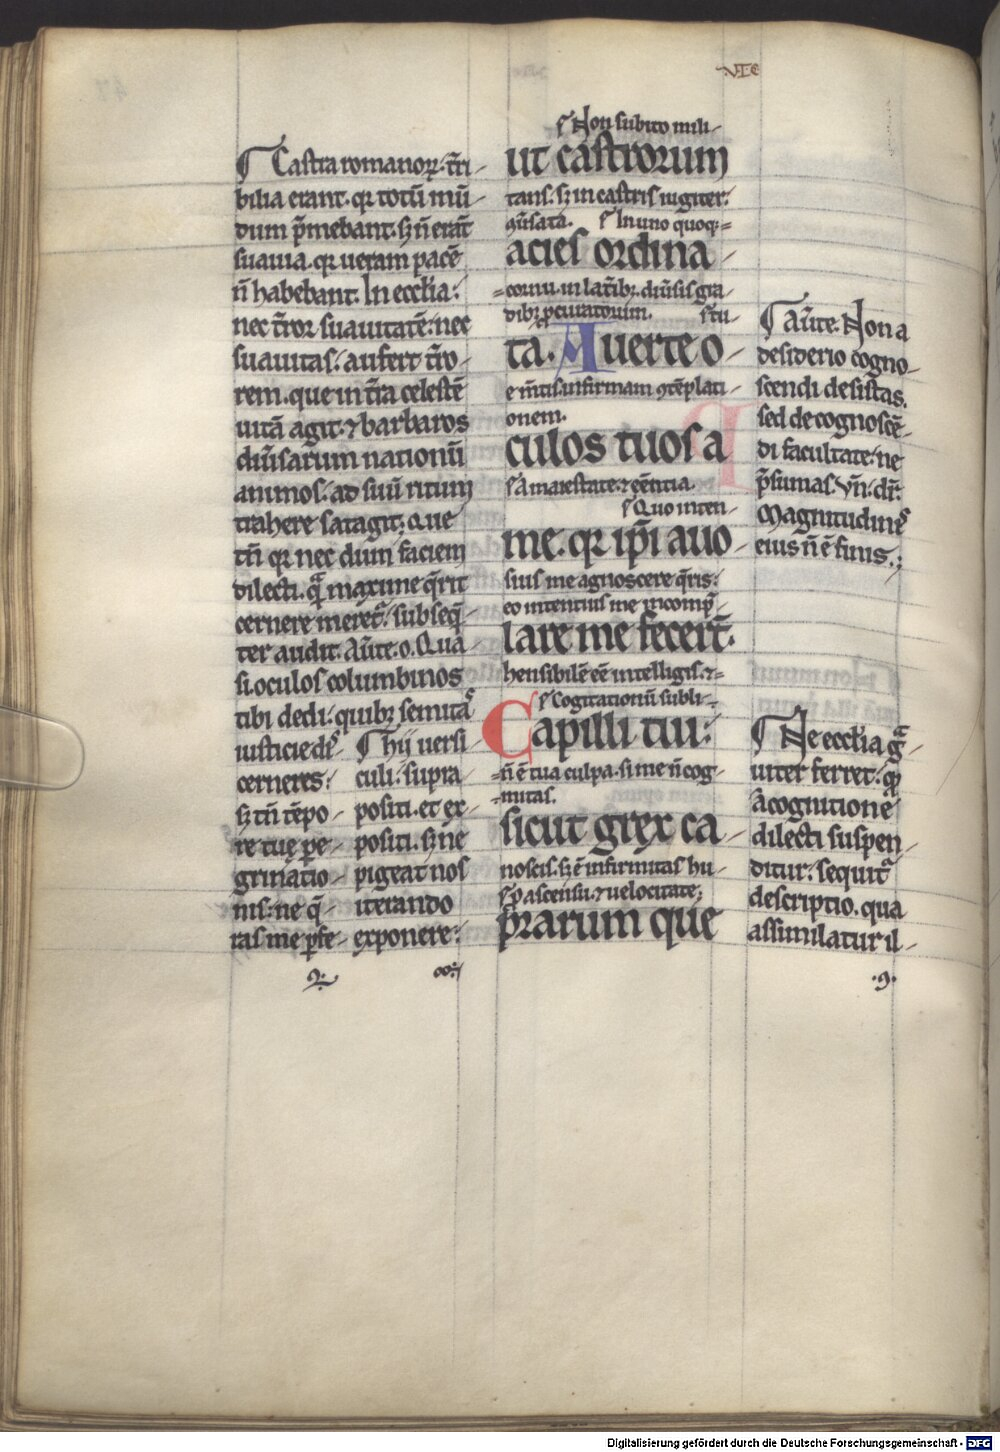 VI C
¶ Castra romanoꝝ. t̄ri-
bilia erant. qꝛ totū mū-
dum p̄mebant. sꝫ n̄ erāt
suauia. qꝛ ueram pacē
n̄ habebant. In eccl̄ia:
nec t̄ror suauitatē: nec
suauitas: aufert t̄ro-
rem. que in t̄ra celestē
uitā agit. ⁊ barbaros
diũsarum nationū
animos: ad suū ritum
trahere satagit; Que
tn̄ qꝛ nec dum faciem
dilecti. q̄ maxime q̄rit
cernere meret᷑: subseq̄-
ter audit. Aũte. o. Qua
si. oculos columbinos
tibi dedi: quibꝫ semitā
iusticie di-
cerneres:
sꝫ tn̄ tēpo-
re tuę ꝑe-
grinatio-
nis: ne q̄-
ras me ꝑfe-
¶ Hij uersi-
culi: supra
positi. et ex-
positi. sꝫ ne
pigeat nos
iterando
exponere:
¶ Non subito mili-
ut castrorum
tans. sꝫ in castris iugiter.
ꝯũsata. ¶ In uno quoqꝫ
acies ordina-
cornu. in lat̄ibꝫ. diũsis gra-
dibꝫ p̄curatorum. ¶ tu
ta. Auerte o-
e m̄tis. infirmam ꝯtēplati-
onem.
culos tuos a
¶ A maiestate. ⁊ eēntia.
¶ Quo inten-
me. qꝛ ip̄i auo-
sius me agnoscere q̄ris:
eo intentius me incomp̄-
lare me fecer̄t.
hensibilē eē intelligis. ⁊
¶ Cogitationū subli-
Capilli tui:
n̄ ē tua culpa. si me n̄ cog-
mitas.
sicut grex ca-
noscis. sꝫ ē infirmitas hu-
¶ p̄ ascensu. ⁊ uelocitate;
prarum que
¶ Aũte. Non a
desiderio cogno-
scendi desistas.
sed de cognoscē-
di facultate: ne
p̄sumas. Vn̄. dr̄:
Magnitudinis
eius n̄ ē finis.;
¶ Ne eccl̄ia g̃-
uiter ferret: qꝫ
a cognitione
dilecti suspen-
ditur: sequit᷑
descriptio. qua
assimilatur il-
Digitalisierung gefördert durch die Deutsche Forschungsgemeinschaft - DFG